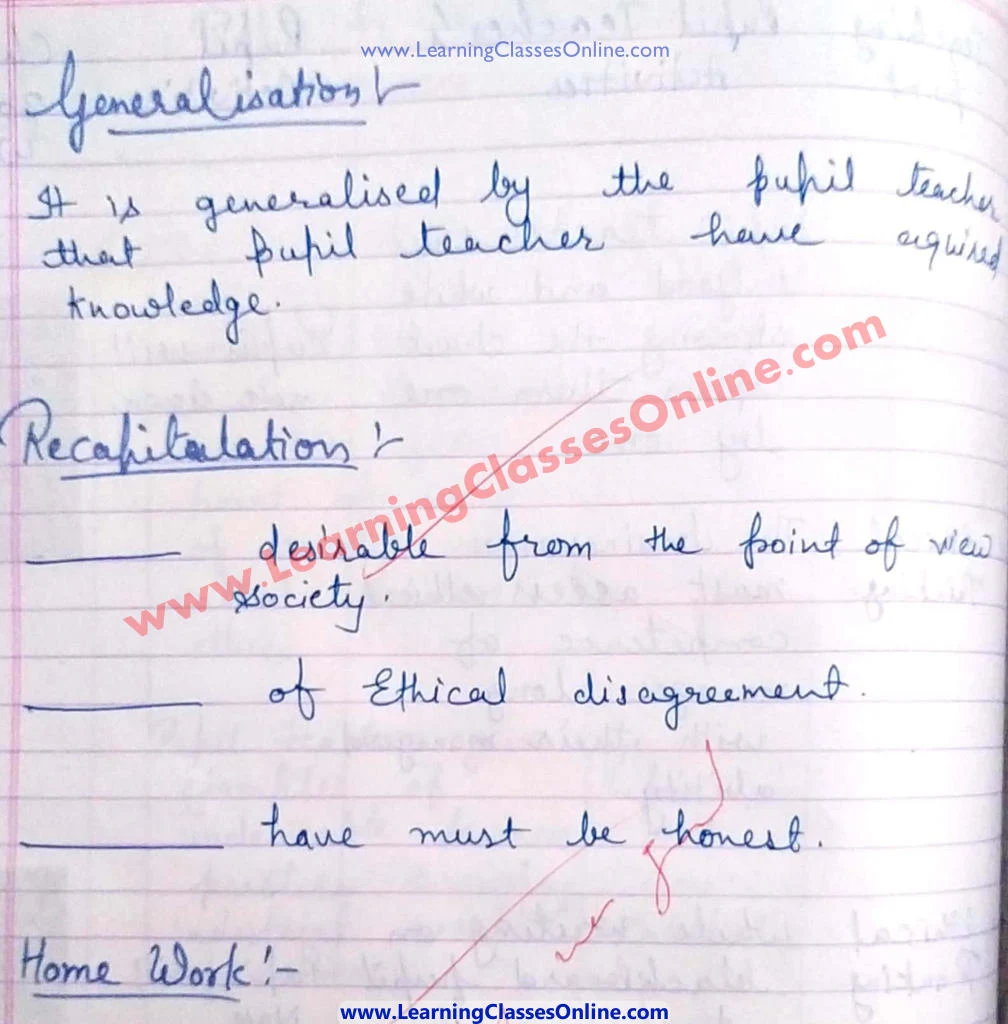 www.LearningClassesOnline.com
Generalisation :-
It is generalised by the pupil teacher
that pupil teacher have aquired
knowledge.
Recapitulation :-
www.LearningClassesOnline.com
______ desirable from the point of view
society.
______ of Ethical disagreement.
______ have must be honest.
Home Work :-
www.LearningClassesOnline.com